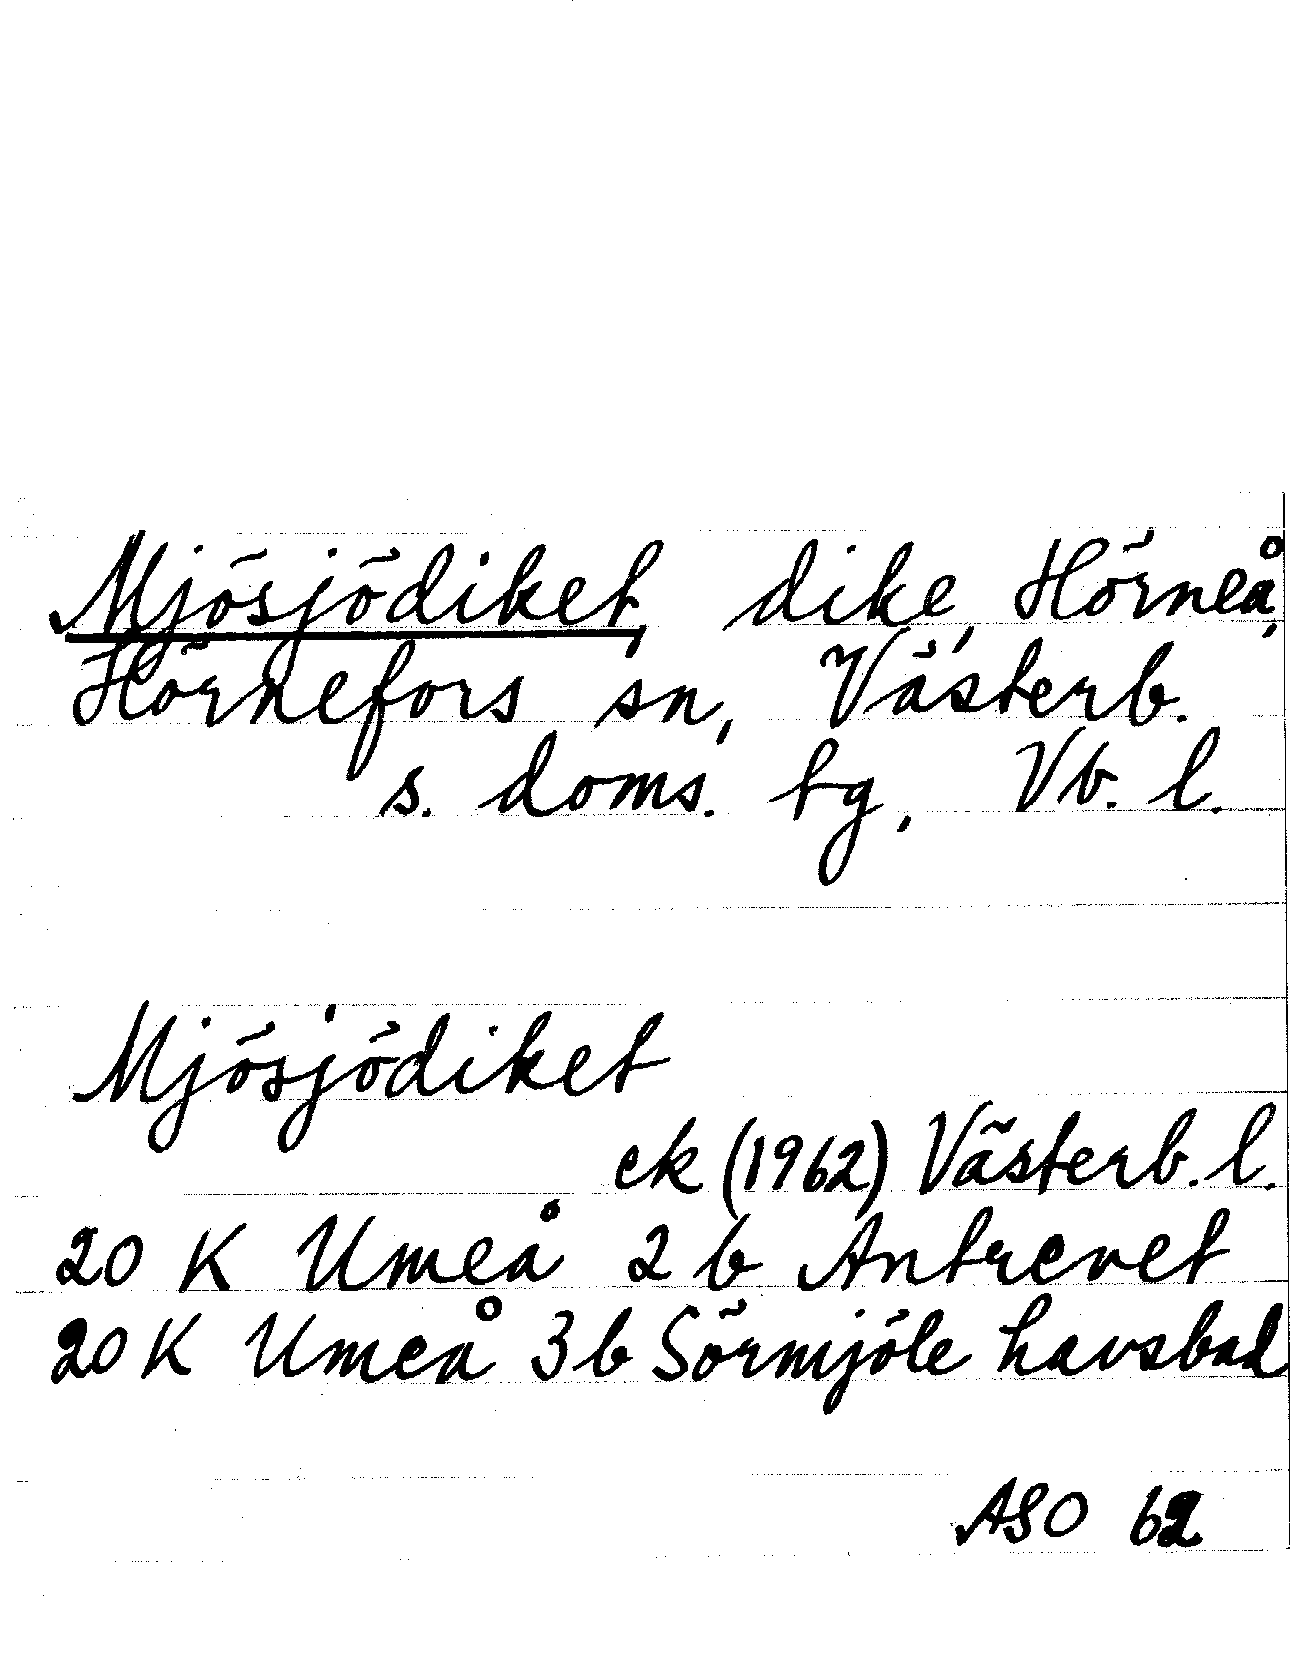 Mjösjödiket, dike, Hörneå,
Hörnefors sn, Västerb.
s. doms. tg, Vb. l.
Mjösjödiket
ek (1962) Västerb. l.
20 K Umeå 2 b Antrevet
20 K Umeå 3 b Sörmjöle havsbad
ASO 62